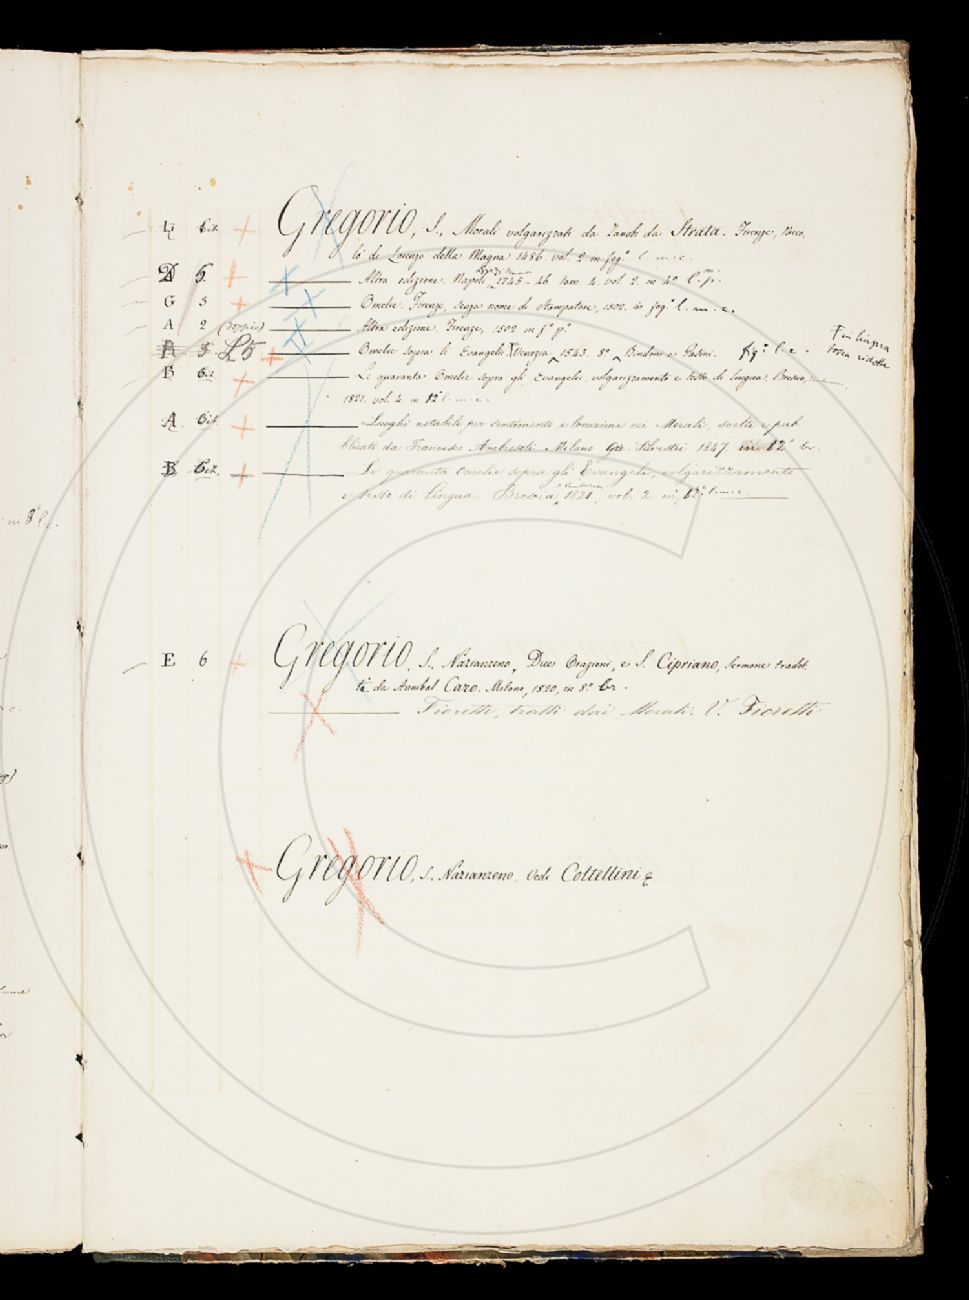 Gregorio, S., Morali volgarizzati da Zanobi da Strata. Firenze, Nico,
lò di Lorenzo della Magna 1486. vol. 2 in fog.° l. m. c.
D 5. Altra edizione. Napoli 1745-46 tom. 4. vol 2. in 4° l. p.
G 3 Omelie. Firenze, senza nome di Stampatore, 1502. in fog.° l. m. c.
A 2 (doppio) Altra edizione. Firenze, 1502 in f° p°
5 L5 Omelie sopra li Evangeli. Venezia 1543. 8° Bindoni e Pasini. fig.° l. c. in lingua tosca ridotte
B Le quaranta Omelie sopra gli Evangeli, volgarizzamento e testo di lingua. Brescia,
1821. vol. 4. in 12° l. m. c.
A Luoghi notabili per sentimento e locuzione nei Morali, scelti e pub
blicati da Francesco Ambrosoli. Milano Silvestri 1847. in 12° br.
Le quaranta Omelie sopra gli Evangeli, volgarizzamento
e testo di lingua. Brescia, 1821, vol. 2 in 12°
in 8° l. c.
E 6 Gregorio, S. Nazianzeno, Due Orazioni, e S. Cipriano, Sermone tradot
to da Annibal Caro. Milano, 1820, in 8.° br.
Fioretti, tratti dai Morali. V. Fioretti
Gregorio, S. Nazianzeno. Vedi Cottellini